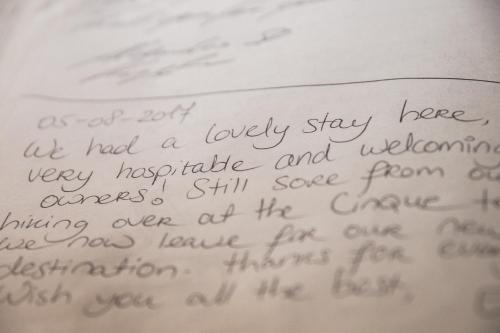 05-08-2017
We had a lovely stay here,
very hospitable and welcoming
owners! Still sore from
hiking over at the Cinque
we now leave for our new
destination. thanks for
Wish you all the best,